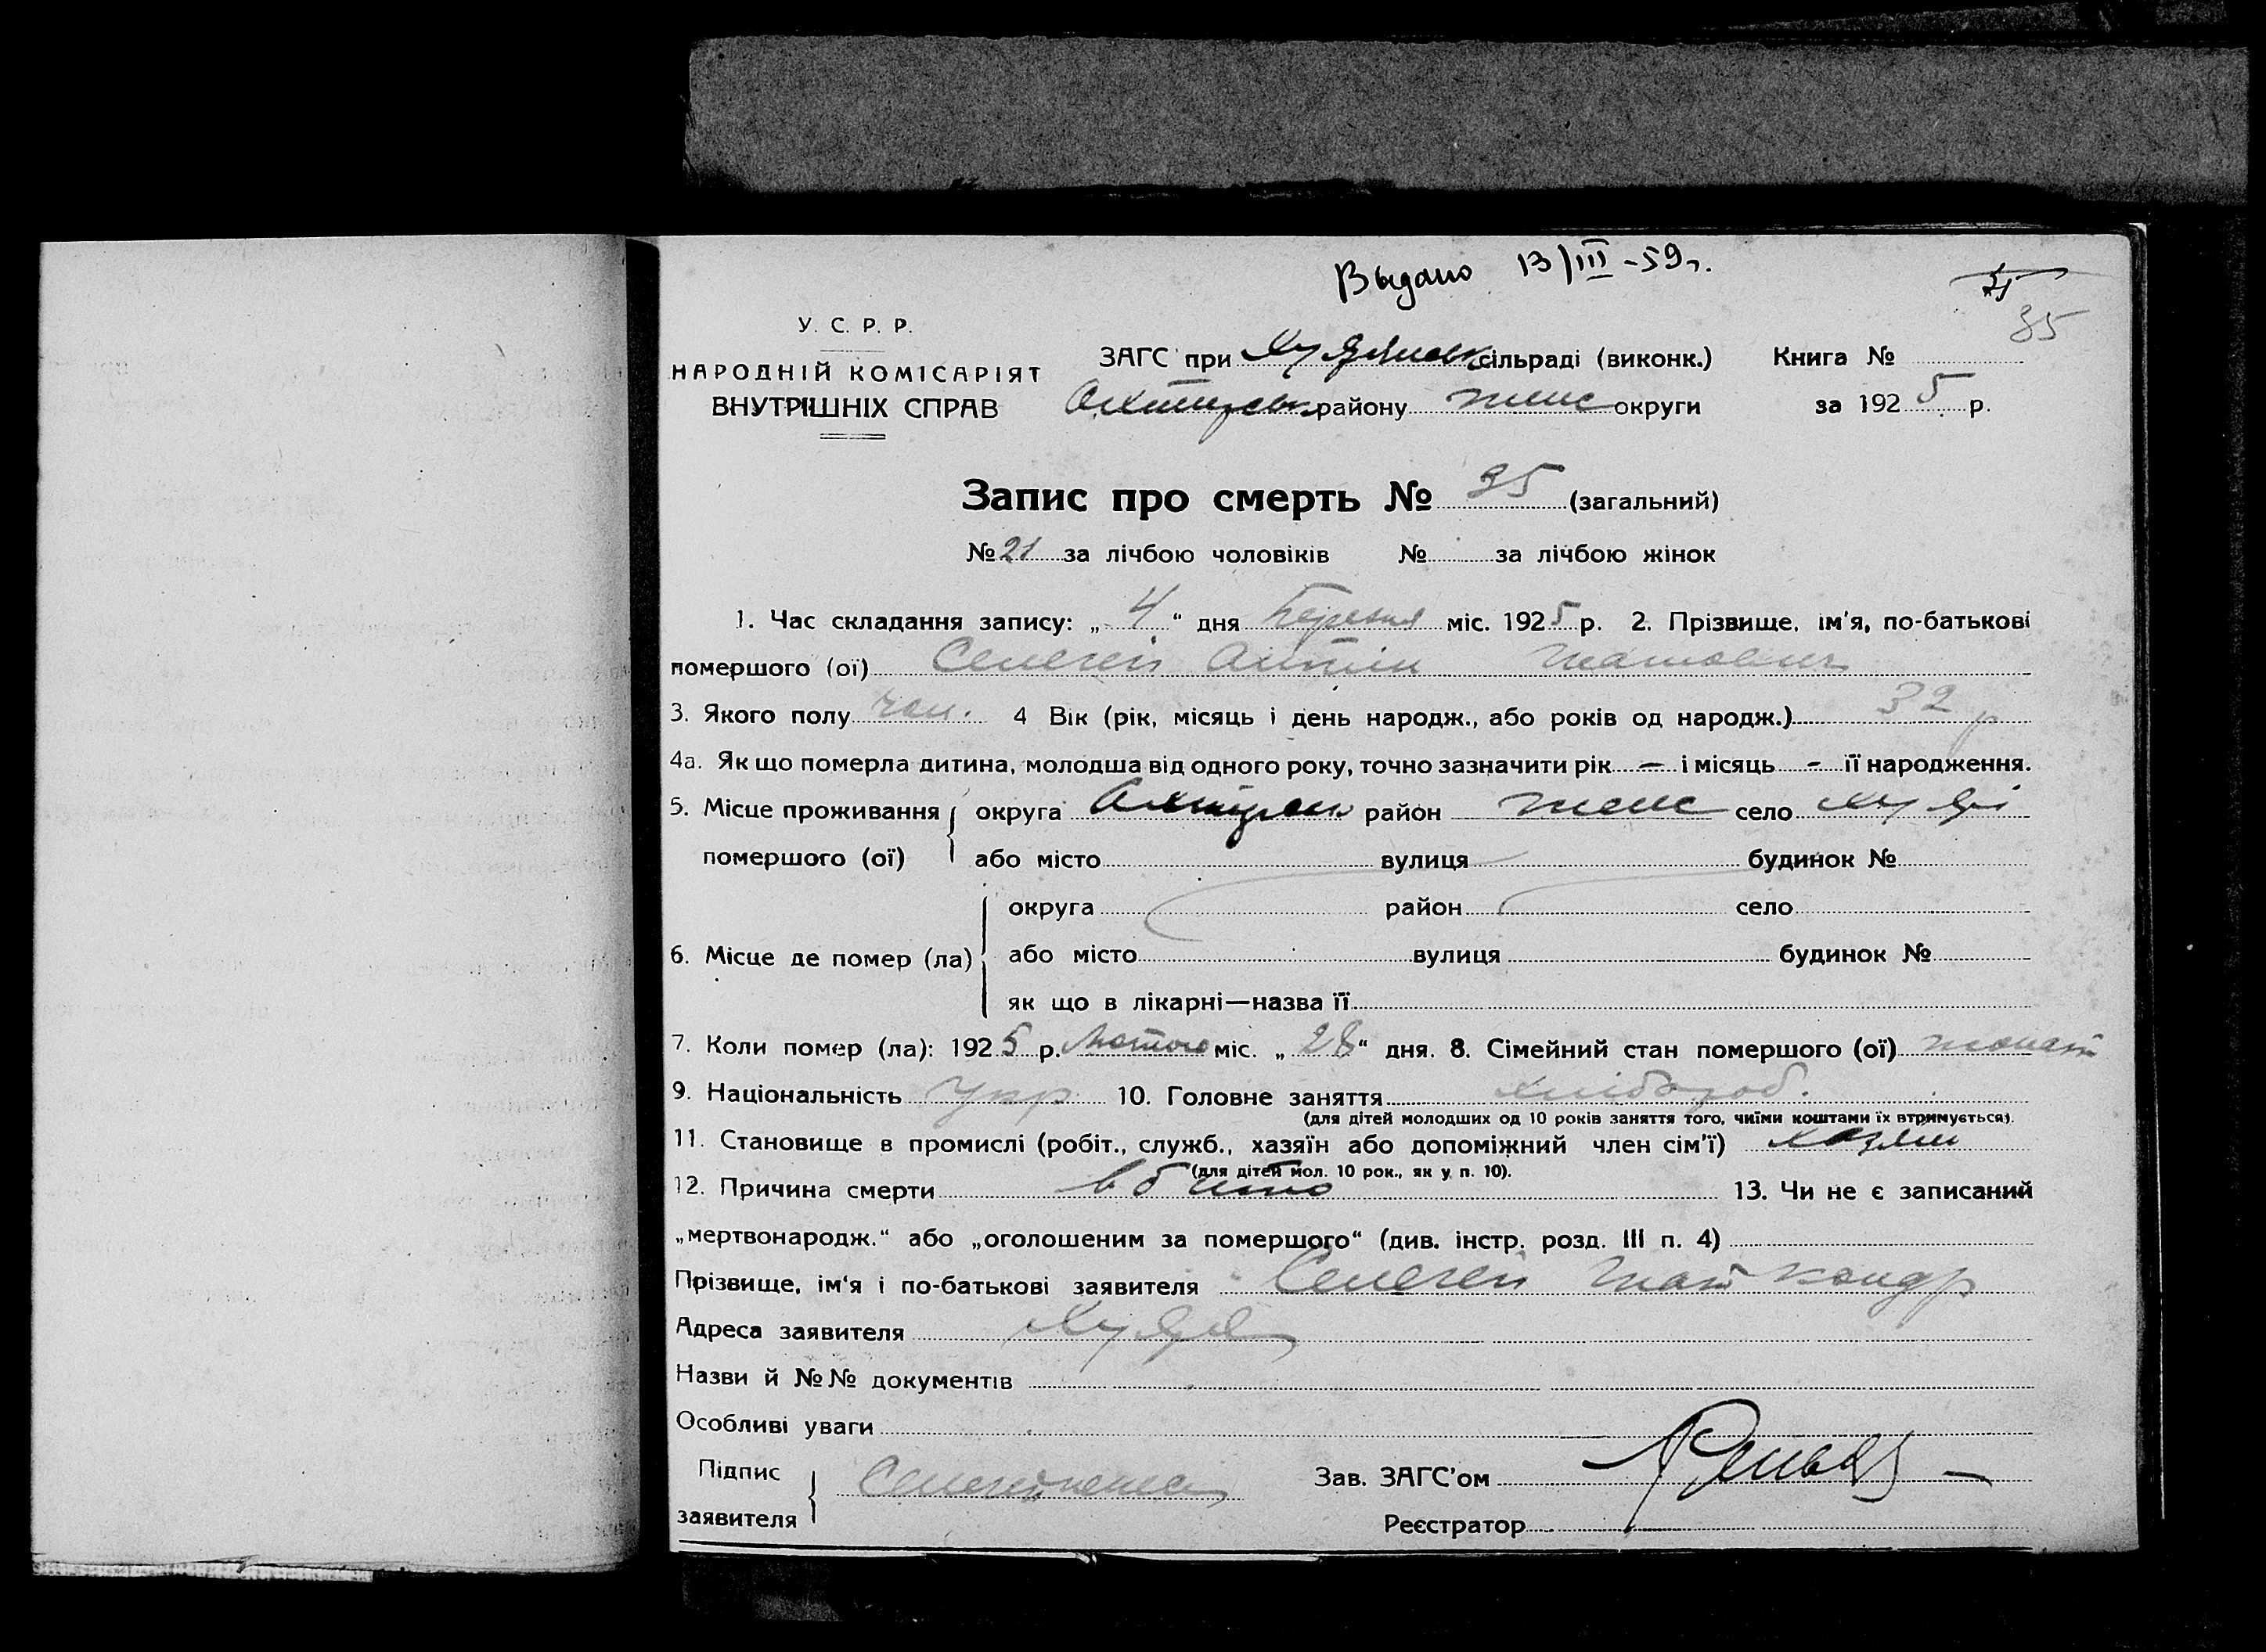 Выдано 13/III-59г.
35
У. С. Р. Р.
НАРОДНІЙ КОМІСАРІЯТ
ВНУТРІШНІХ СПРАВ
ЗАГС при сільраді (виконк.) Книга №
району округи за 1925 р.
Запис про смерть № 35 (загальний)
№ 21 за лічбою чоловіків № за лічбою жінок
1. Час складання запису: „ 4 “ дня Березня міс. 1925 р. 2. Прізвище, ім'я, по-батькові
помершого (ої) Селегей Антін
3. Якого полу чол. 4 Вік (рік, місяць і день народж., або років од народж.) 32 р
4а. Як що померла дитина, молодша від одного року, точно зазначити рік — і місяць - її народження.
5. Місце проживання округа район село
помершого (ої) або місто вулиця будинок №
округа район село
6. Місце де помер (ла) або місто вулиця будинок №
як що в лікарні—назва її
7. Коли помер (ла): 1925 р. Лютого міс. „ 28 “ дня. 8. Сімейний стан помершого (ої) жонат
9. Національність Укр 10. Головне заняття хлібороб.
(для дітей молодших од 10 років заняття того, чиїми коштами їх втримується).
11. Становище в промислі (робіт., служб., хазяїн або допоміжний член сім'ї) хазяін
(для дітей мол. 10 рок., як у п. 10).
12. Причина смерти вбито 13. Чи не є записаний
„мертвонародж.“ або „оголошеним за помершого“ (див. інстр. розд. III п. 4)
Прізвище, ім'я і по-батькові заявителя Селегей
Адреса заявителя
Назви й №№ документів
Особливі уваги
Підпис
заявителя
Зав. ЗАГС'ом
Реєстратор